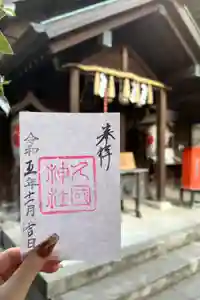 奉拝
久國
神社
令和五年十二月吉日